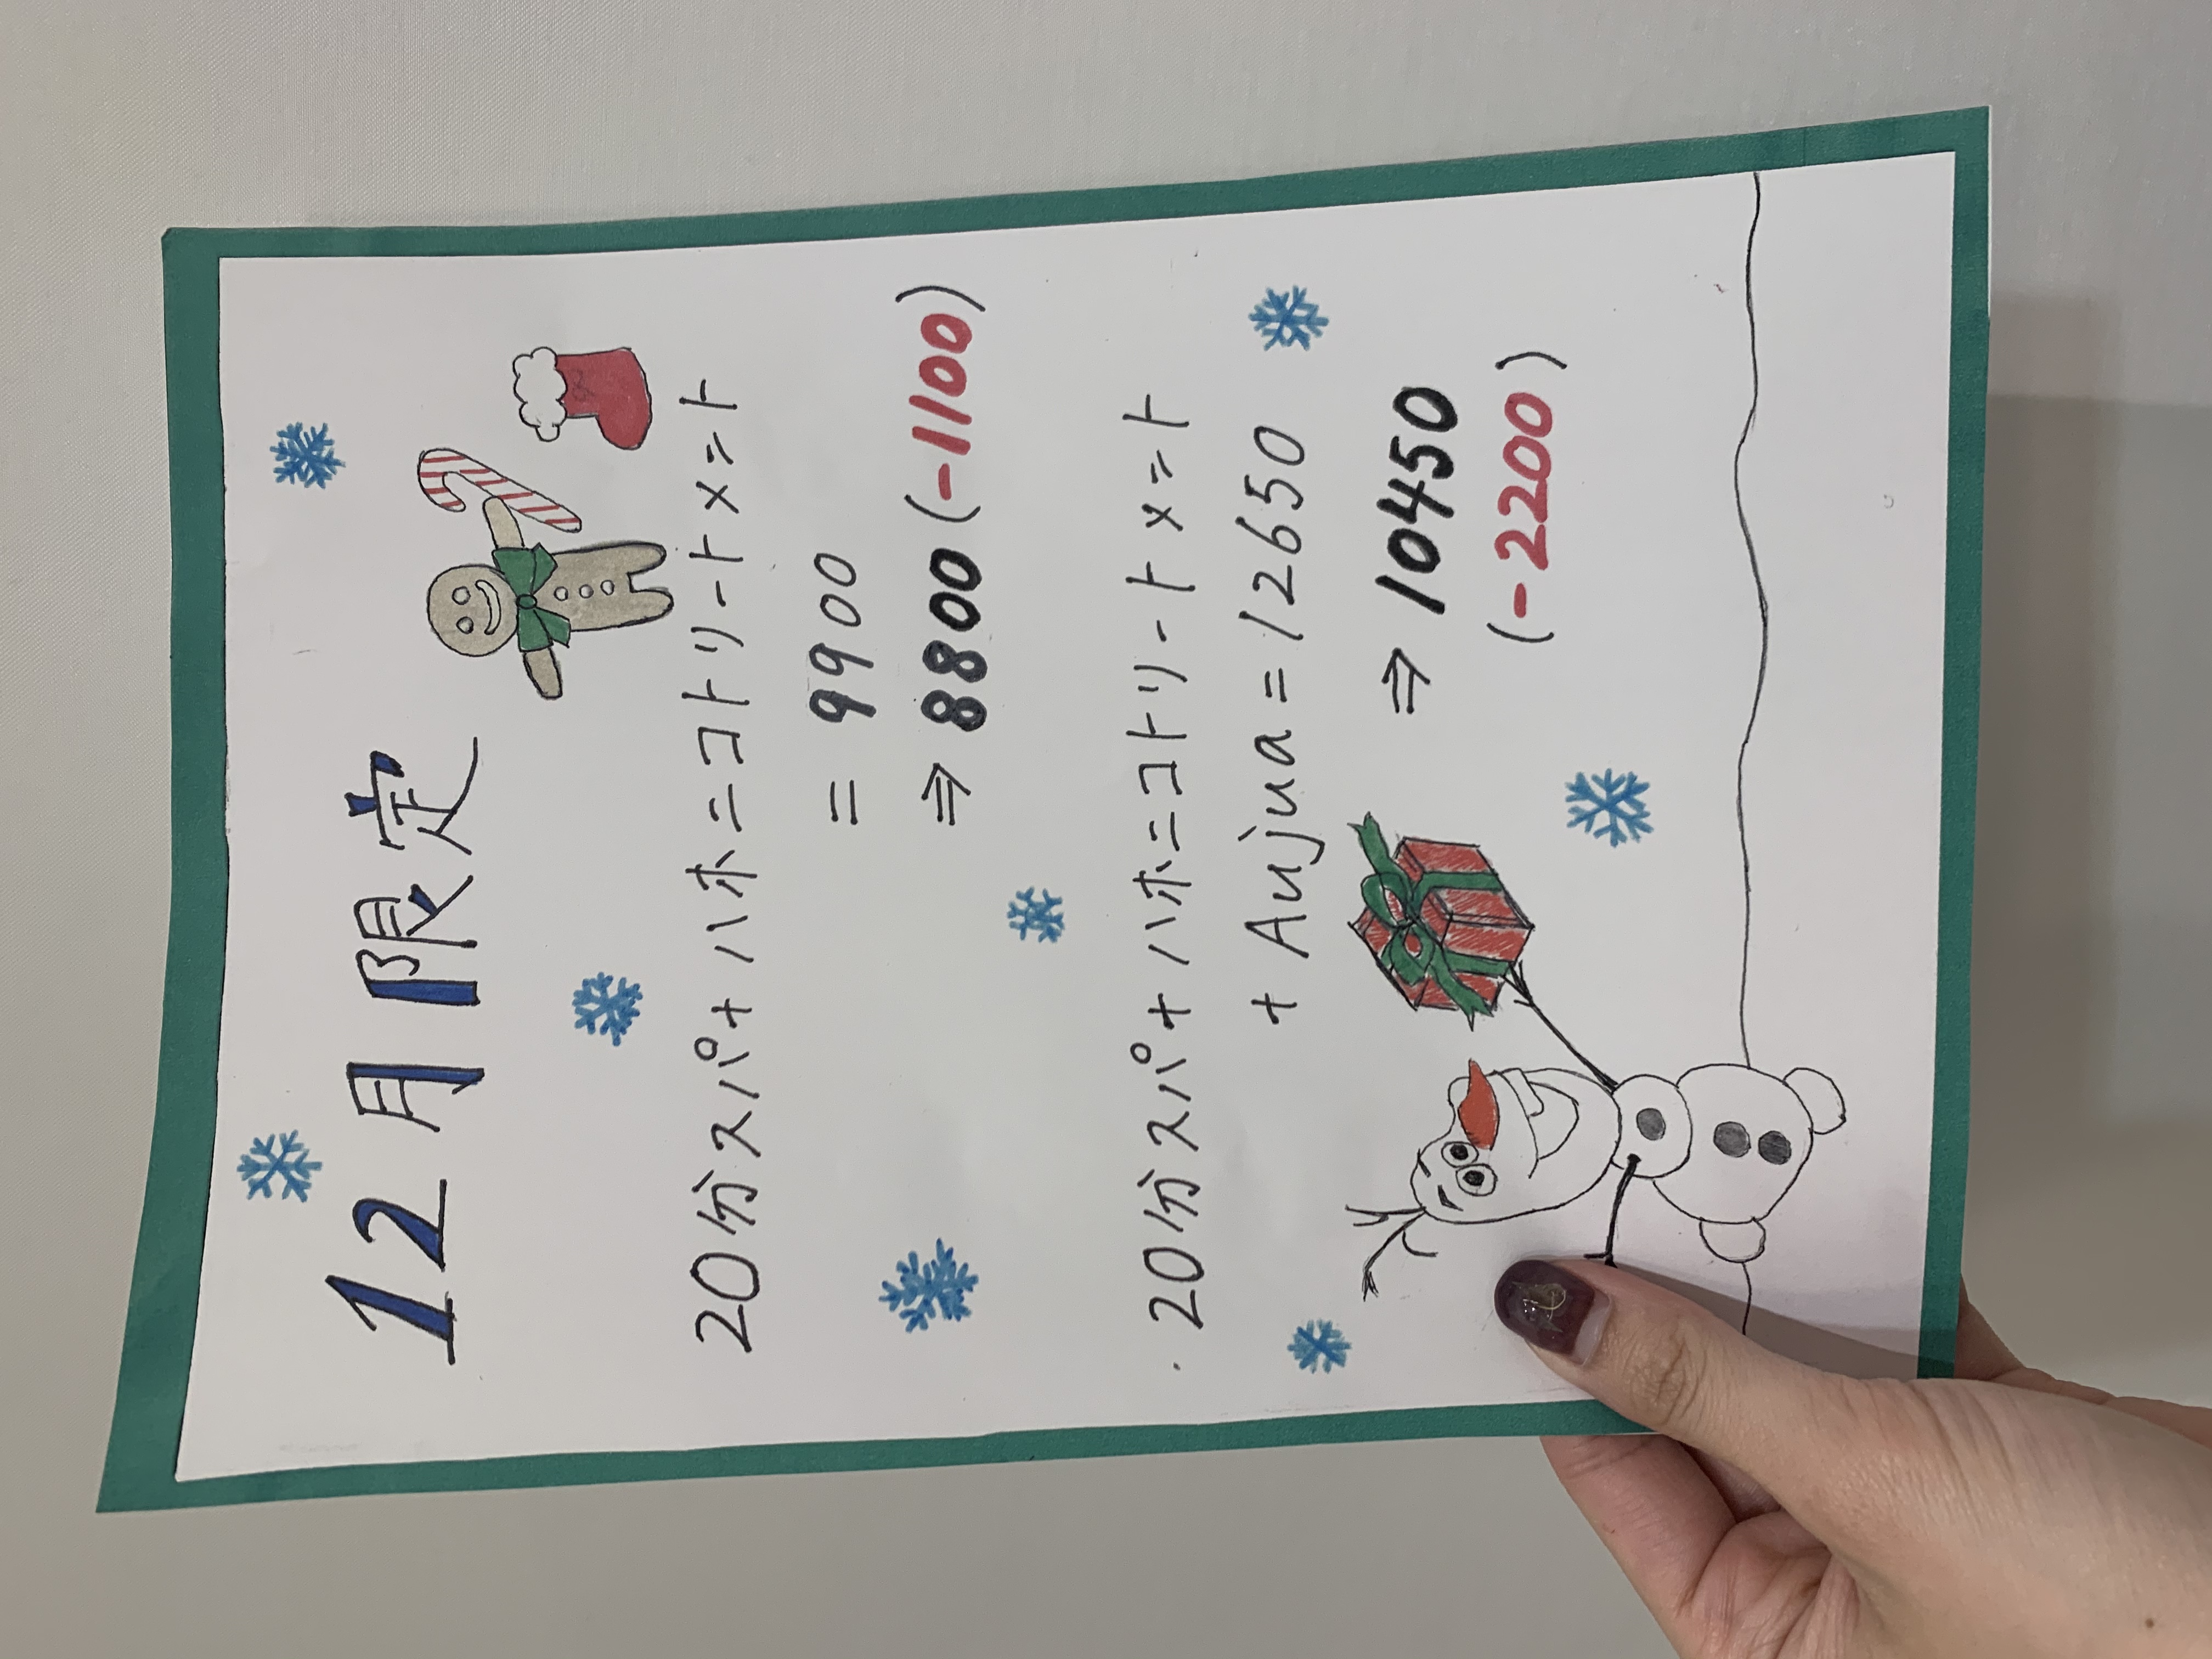 12月限定
20分スパ+ハホニコトリートメント
= 9900
⇒ 8800(-1100)
・20分スパ+ハホニコトリートメント
+ Aujua = 12650
⇒ 10450
(-2200)